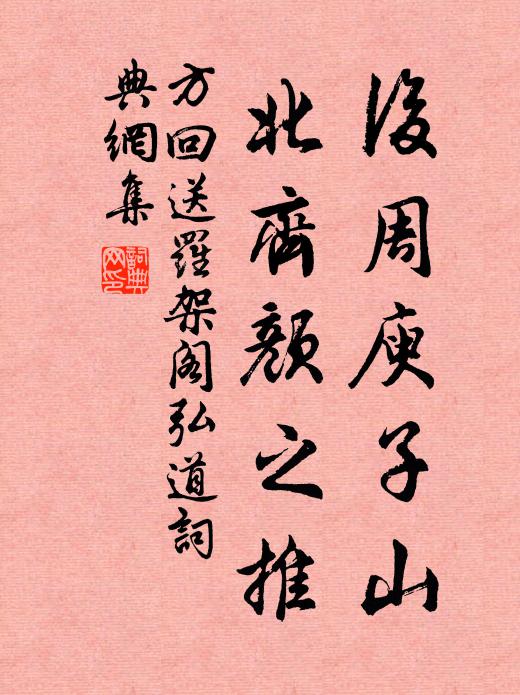 後周庾子山
北齊顏之推
方回送羅架阁弘道詞
典網集
詞典
网印